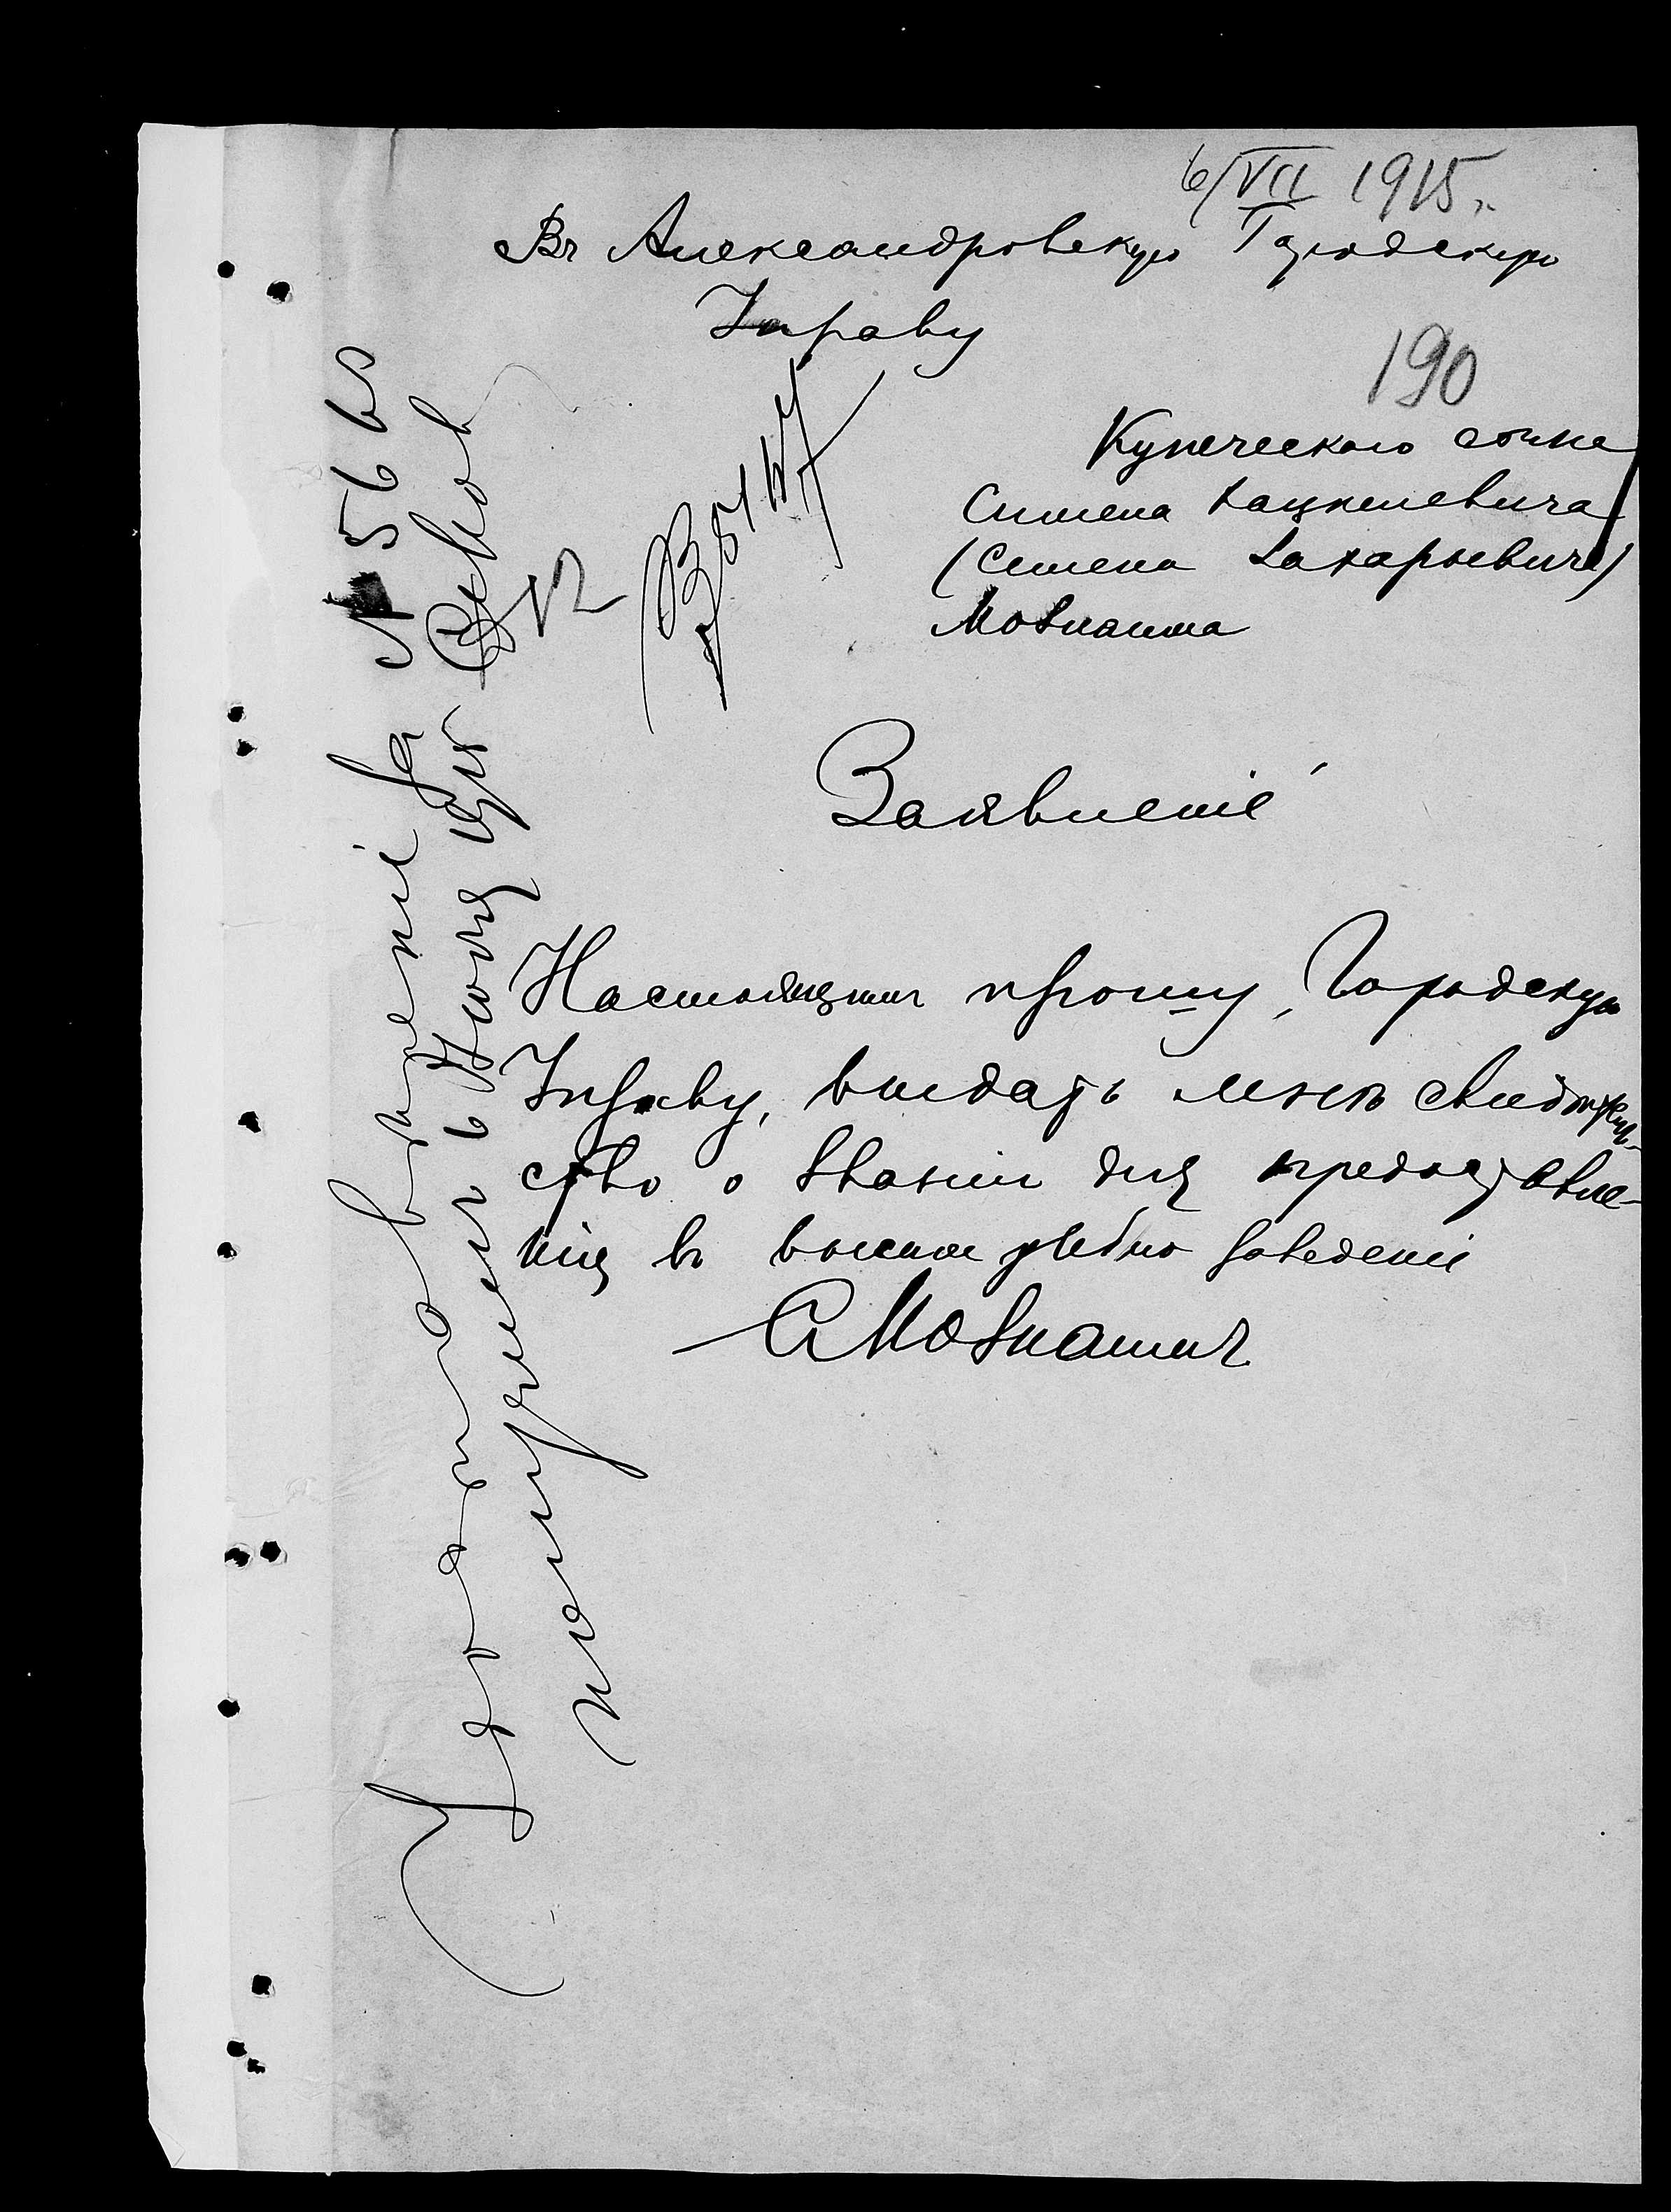 6/VII 1915 г.
Въ Александровскую Городскую
Управу
190
Купеческаго сына
Симена
(Семена Захарьевича)
Мовшаица
Заявленіе
Настоящимъ прошу, Городскую
Управу, выдать мнѣ свидѣтель-
ство о званіи для предоставле-
нія въ высшія учебно заведенія
С Мовшаицъ
Удостовѣреніе за № 5660
получилъ 6 Іюля 1915